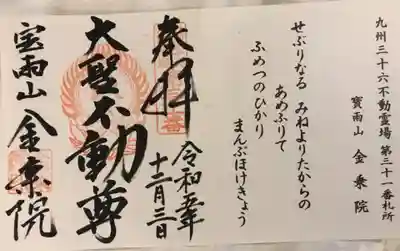 九州三十六不動霊場 第三十一番札所
寳雨山 金乗院
せぶりなる みねよりたからの
あめふりて
ふめつのひかり
まんぶほけきょう
奉拝
令和五年
十二月三日
大聖不動尊
宝雨山 金乗院